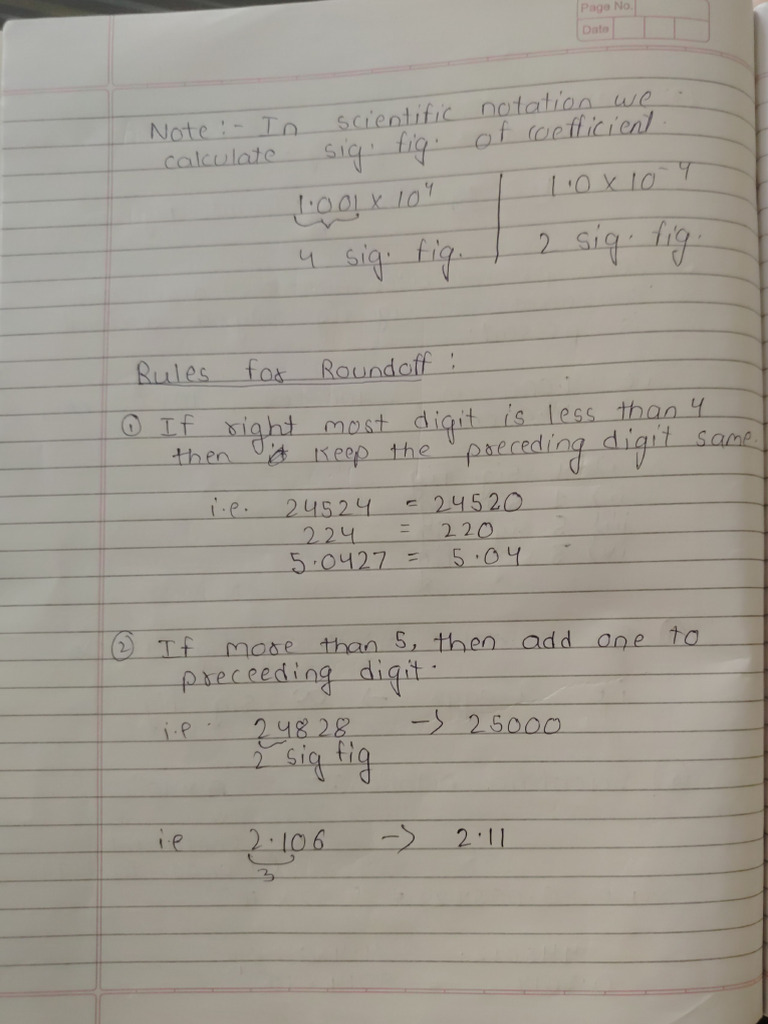 Page No.
Date
Note :- In scientific notation we
calculate sig. fig. of coefficient.
1.001 x 10⁴ | 1.0 x 10⁻⁴
4 sig. fig. | 2 sig. fig.
Rules for Roundoff :
① If right most digit is less than 4
then keep the preceding digit same
i.e. 24524 = 24520
224 = 220
5.0427 = 5.04
② If more than 5, then add one to
preceeding digit.
i.e. 24828 -> 25000
2 sig fig
i.e 2.106 -> 2.11
3